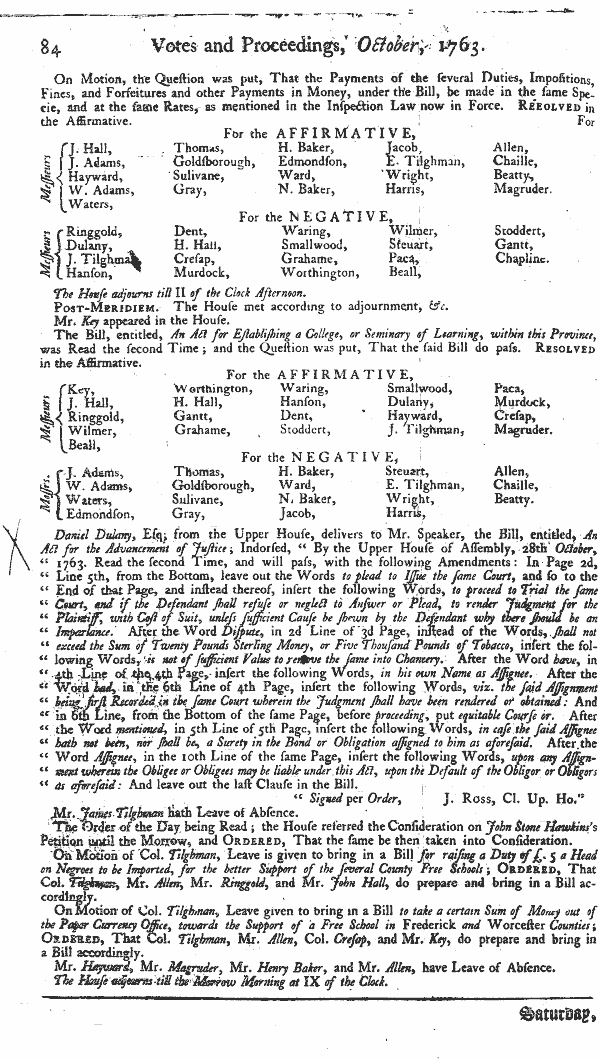 84 Votes and Proceedings, October, 1763.
On Motion, the Queſtion was put, That the Payments of the ſeveral Duties, Impoſitions,
Fines, and Forfeitures and other Payments in Money, under the Bill, be made in the ſame Spe-
cie, and at the ſame Rates, as mentioned in the Inſpection Law now in Force. RESOLVED in
the Affirmative. For
For the AFFIRMATIVE,
Meſſieurs
J. Hall, Thomas, H. Baker, Jacob, Allen,
J. Adams, Goldſborough, Edmondſon, E. Tilghman, Chaille,
Hayward, Sulivane, Ward, Wright, Beatty,
W. Adams, Gray, N. Baker, Harris, Magruder.
Waters,
For the NEGATIVE,
Meſſieurs
Ringgold, Dent, Waring, Wilmer, Stoddert,
Dulany, H. Hall, Smallwood, Steuart, Gantt,
J. Tilghman Creſap, Grahame, Paca, Chapline.
Hanſon, Murdock, Worthington, Beall,
The Houſe adjourns till II of the Clock Afternoon.
POST-MERIDIEM. The Houſe met according to adjournment, &c.
Mr. Key appeared in the Houſe.
The Bill, entitled, An Act for Eſtabliſhing a College, or Seminary of Learning, within this Province,
was Read the ſecond Time; and the Queſtion was put, That the ſaid Bill do paſs. RESOLVED
in the Affirmative.
For the AFFIRMATIVE,
Meſſieurs
Key, Worthington, Waring, Smallwood, Paca,
J. Hall, H. Hall, Hanſon, Dulany, Murdock,
Ringgold, Gantt, Dent, Hayward, Creſap,
Wilmer, Grahame, Stoddert, J. Tilghman, Magruder.
Beall,
For the NEGATIVE,
Meſſrs.
J. Adams, Thomas, H. Baker, Steuart, Allen,
W. Adams, Goldſborough, Ward, E. Tilghman, Chaille,
Waters, Sulivane, N. Baker, Wright, Beatty.
Edmondſon, Gray, Jacob, Harris,
Daniel Dulany, Eſq; from the Upper Houſe, delivers to Mr. Speaker, the Bill, entitled, An
Act for the Advancement of Juſtice; Indorſed, “ By the Upper Houſe of Aſſembly, 28th October,
“ 1763. Read the ſecond Time, and will paſs, with the following Amendments: In Page 2d,
“ Line 5th, from the Bottom, leave out the Words to plead to Iſſue the ſame Court, and ſo to the
“ End of that Page, and inſtead thereof, inſert the following Words, to proceed to Trial the ſame
“ Court, and if the Defendant ſhall refuſe or neglect to Anſwer or Plead, to render Judgment for the
“ Plaintiff, with Coſt of Suit, unleſs ſufficient Cauſe be ſhewn by the Defendant why there ſhould be an
“ Imparlance. After the Word Diſpute, in 2d Line of 3d Page, inſtead of the Words, ſhall not
“ exceed the Sum of Twenty Pounds Sterling Money, or Five Thouſand Pounds of Tobacco, inſert the fol-
“ lowing Words, is not of ſufficient Value to remove the ſame into Chancery. After the Word have, in
“ 4th Line of the 4th Page, inſert the following Words, in his own Name as Aſſignee. After the
“ Word had, in the 6th Line of 4th Page, inſert the following Words, viz. the ſaid Aſſignment
“ being firſt Recorded in the ſame Court wherein the Judgment ſhall have been rendered or obtained: And
“ in 6th Line, from the Bottom of the ſame Page, before proceeding, put equitable Courſe or. After
“ the Word mentioned, in 5th Line of 5th Page, inſert the following Words, in caſe the ſaid Aſſignee
“ hath not been, nor ſhall be, a Surety in the Bond or Obligation aſſigned to him as aforeſaid. After the
“ Word Aſſignee, in the 10th Line of the ſame Page, inſert the following Words, upon any Aſſign-
“ ment wherein the Obligee or Obligees may be liable under this Act, upon the Default of the Obligor or Obligors
“ as aforeſaid: And leave out the laſt Clauſe in the Bill.
“ Signed per Order, J. Ross, Cl. Up. Ho.”
Mr. James Tilghman hath Leave of Abſence.
The Order of the Day being Read; the Houſe referred the Conſideration on John Stone Hawkins's
Petition until the Morrow, and ORDERED, That the ſame be then taken into Conſideration.
On Motion of Col. Tilghman, Leave is given to bring in a Bill for raiſing a Duty of £. 5 a Head
on Negroes to be Imported, for the better Support of the ſeveral County Free Schools; ORDERED, That
Col. Tilghman, Mr. Allen, Mr. Ringgold, and Mr. John Hall, do prepare and bring in a Bill ac-
cordingly.
On Motion of Col. Tilghman, Leave given to bring in a Bill to take a certain Sum of Money out of
the Paper Currency Office, towards the Support of a Free School in Frederick and Worceſter Counties;
ORDERED, That Col. Tilghman, Mr. Allen, Col. Creſap, and Mr. Key, do prepare and bring in
a Bill accordingly.
Mr. Hayward, Mr. Magruder, Mr. Henry Baker, and Mr. Allen, have Leave of Abſence.
The Houſe adjourns till the Morrow Morning at IX of the Clock.
Saturday,